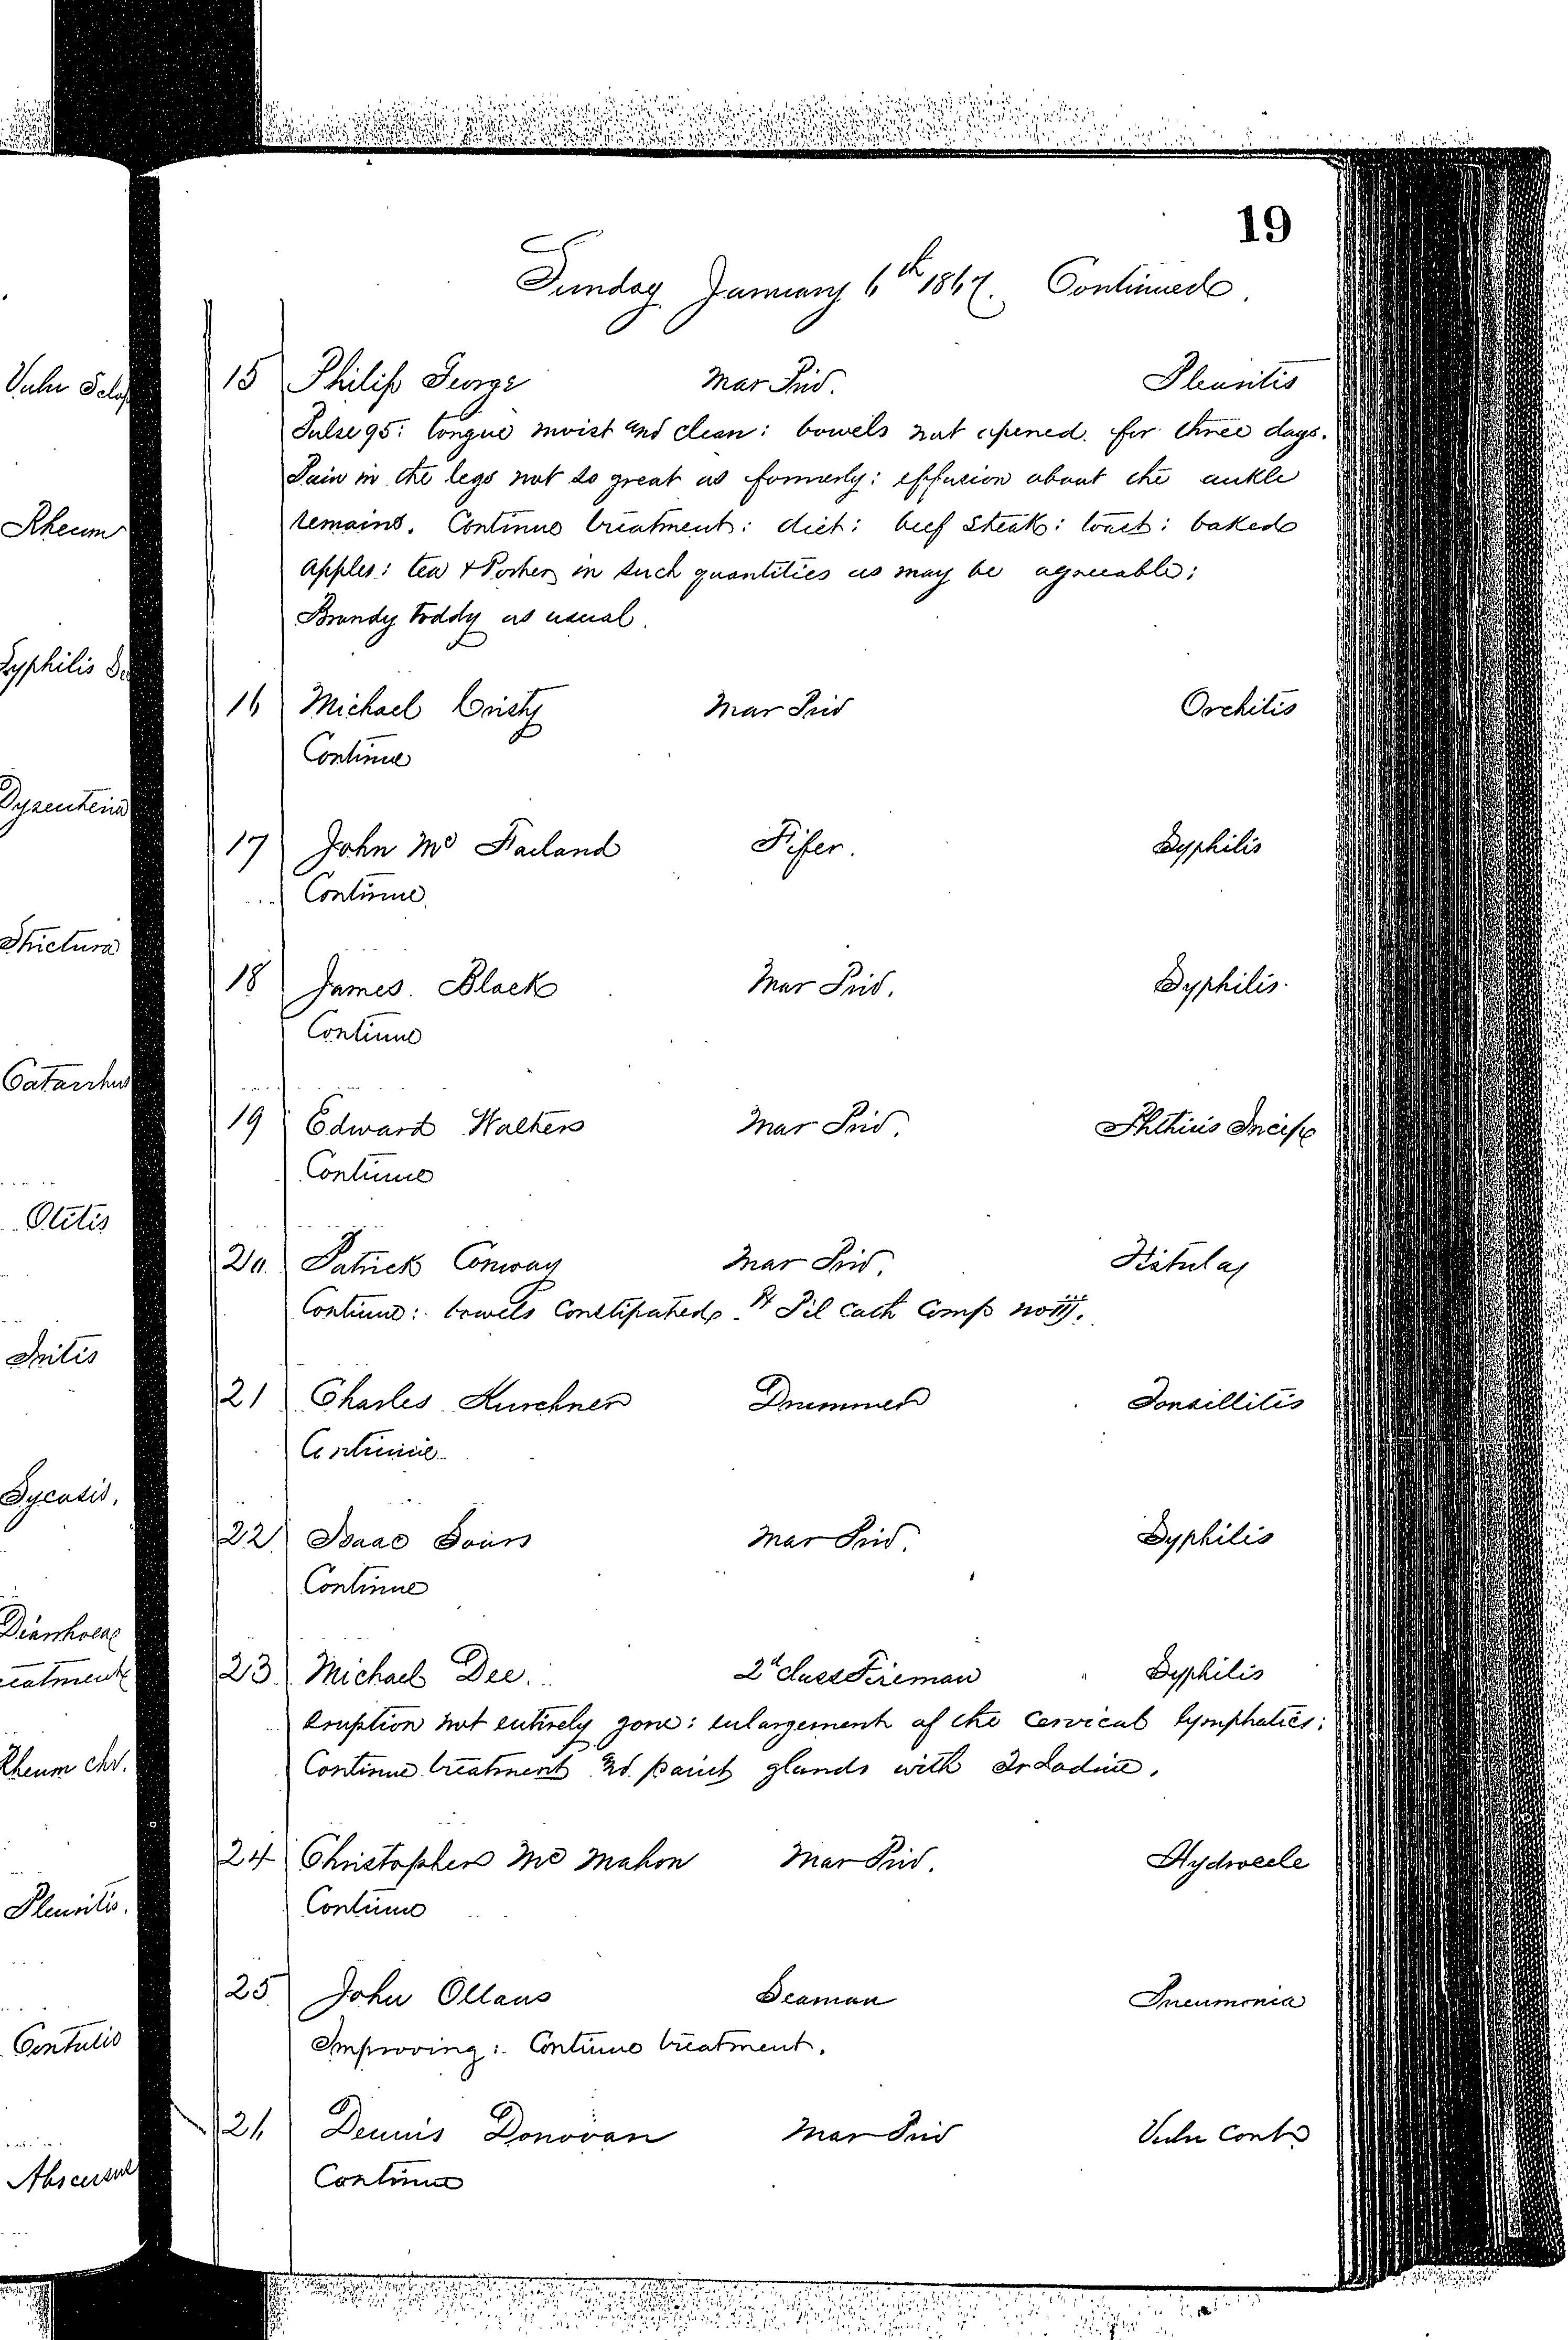 19
Sunday January 6th 1867. Continued.
15 Philip George Mar Priv. Pleuritis
Pulse 95: tongue moist and clean: bowels not opened for three days.
Pain in the legs not so great as formerly: effusion about the ankle
remains. Continue treatment: diet: beef steak: toast: baked
apples: tea & Porter in such quantities as may be agreeable:
Brandy toddy as usual.
16 Michael Cristy Mar Priv Orchitis
Continue
17 John Mc Farland Fifer. Syphilis
Continue.
18 James Black Mar Priv. Syphilis.
Continue
19 Edward Walters Mar Priv. Phthisis Incip
Continue
20 Patrick Conway Mar Priv. Fistula
Continue: bowels constipated. Rx Pil Cath Comp no iij.
21 Charles Kurchner Drummer Tonsillitis
Continue
22 Isaac Mar Priv. Syphilis
Continue
23 Michael Dee. 2d class Fireman Syphilis
Eruption not entirely gone: enlargement of the cervical lymphatics:
Continue treatment and paint glands with Tr Iodine.
24 Christopher Mc Mahon Mar Priv. Hydrocele
Continue
25 John Ollaus Seaman Pneumonia
Improving: Continue treatment.
26 Dennis Donovan Mar Priv Vuln Cont
Continue
Vuln Sclop
Rheum
Syphilis
Dysenteria
Strictura
Catarrhus
Otitis
Iritis
Sycosis.
Diarrhoea
reatment
Rheum chr.
Pleuritis.
Contusio
Abscessus